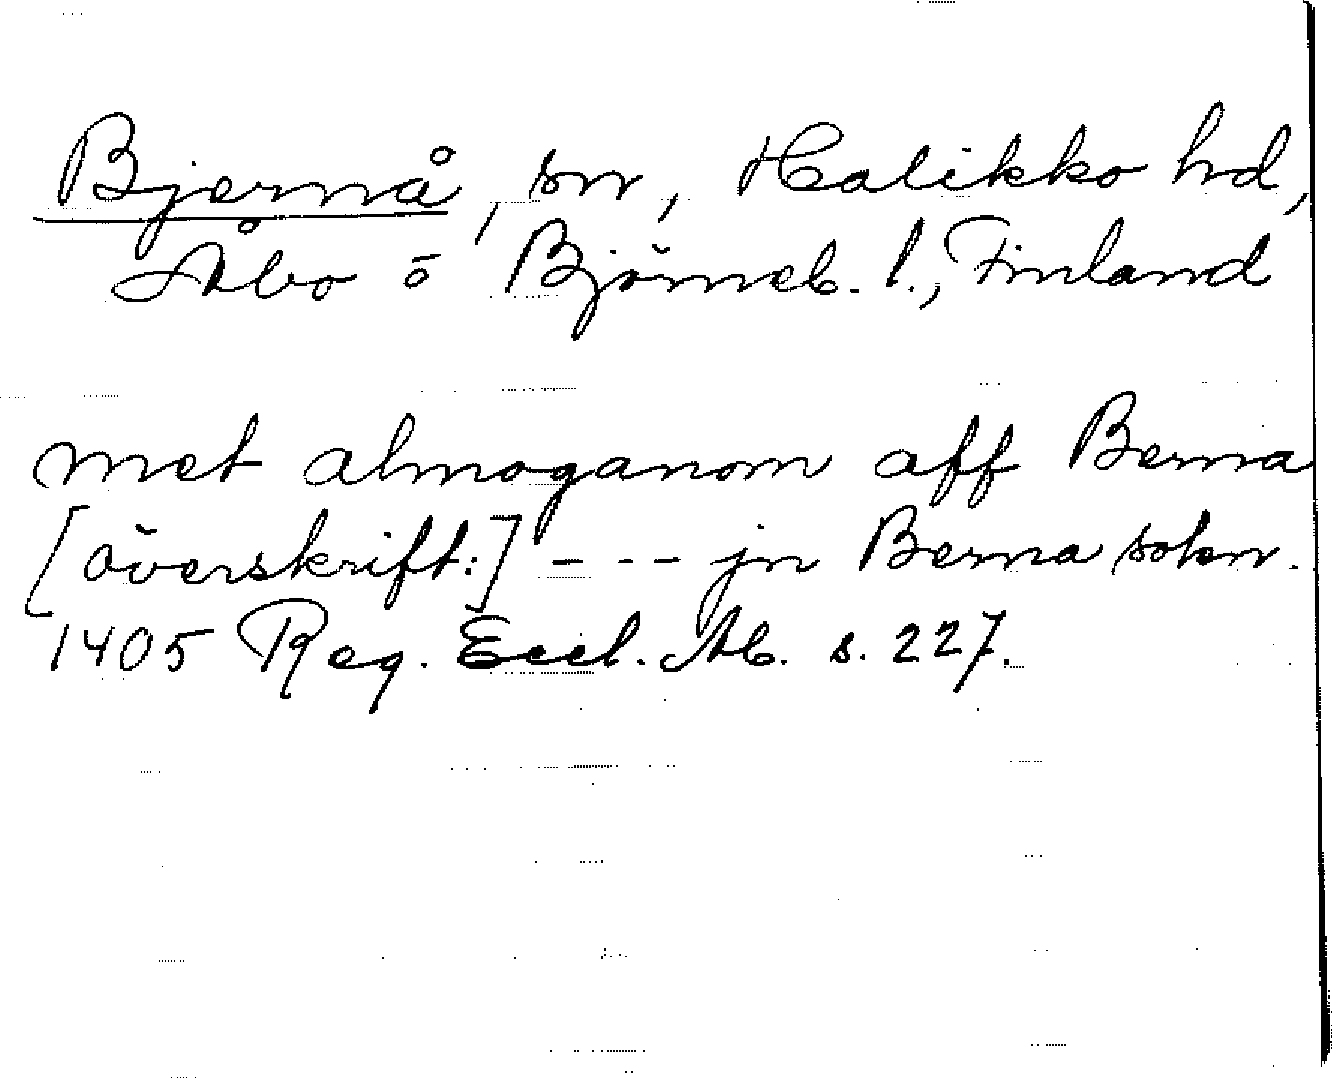 Bjernå, sn, Halikko hd,
Åbo o Björneb. l., Finland
met almoganom aff Berna
[överskrift:] --- jn Berna sokn.
1405 Reg. Eccl. Ab. s. 227.